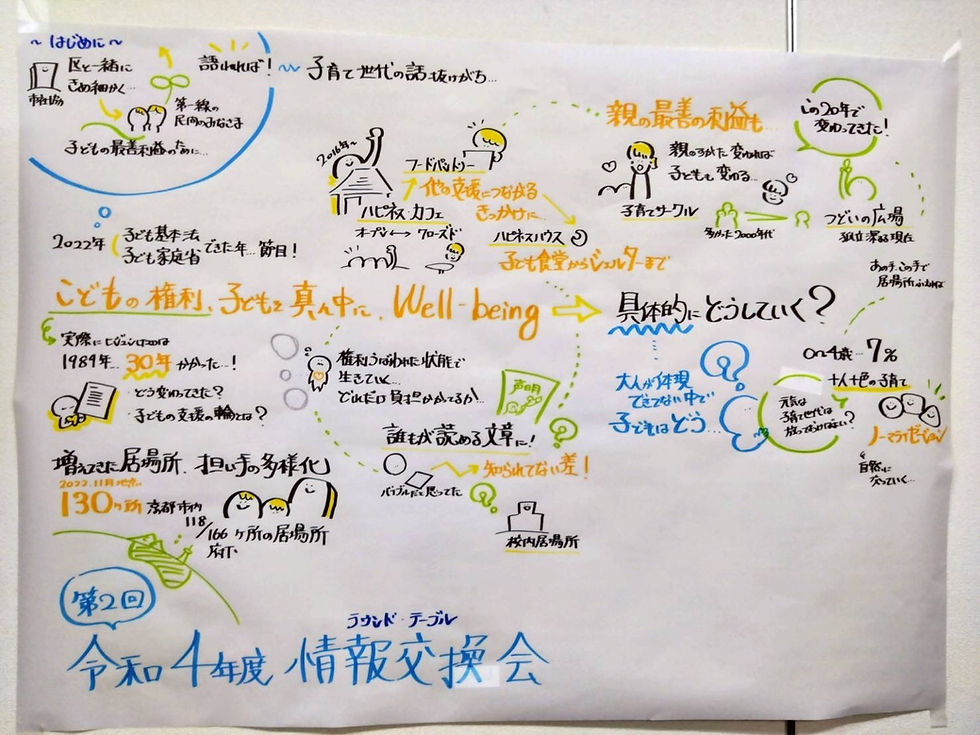 ～はじめに～
区と一緒に
きめ細かく…
市社協
第一線の
民間のみなさま
子どもの最善利益のために…
語れれば！
子育て世代の話 抜けがち…
2016年～
フードパントリー
他の支援につながる
きっかけに…
ハピネス・カフェ
オープン ↔ クローズド
ハピネスハウス
子ども食堂からシェルターまで
親の最善の利益も…
親のすがた変われば
子どもも変わる…
子育てサークル
この20年で
変わってきた！
多かった2000年代
つどいの広場
孤立深まる現在
あの手、この手で
居場所
2022年
子ども基本法
子ども家庭省
できた年…節目！
こどもの権利、子どもを真ん中に、Well-being
具体的にどうしていく？
実際に
1989年… 30年かかった…！
・どう変わってきた？
・子どもの支援の輪とは？
権利うばわれた状態で
生きていく…
どれだけ負担かかるか…
声明
誰もが読める文章に！
知られてない差！
バイブルだと思ってた
校内居場所
大人が体現
できてない中で
子どもはどう…
0～4歳…7%
十人十色の子育て
元気な
子育て世代は
放っておけばよい？
ノーマライゼーション
自然に
交っていく…
増えてきた居場所、担い手の多様化
2022.11月時点
130ヶ所 京都市内
118/166ヶ所の居場所
府下
第2回
ラウンド・テーブル
令和4年度 情報交換会